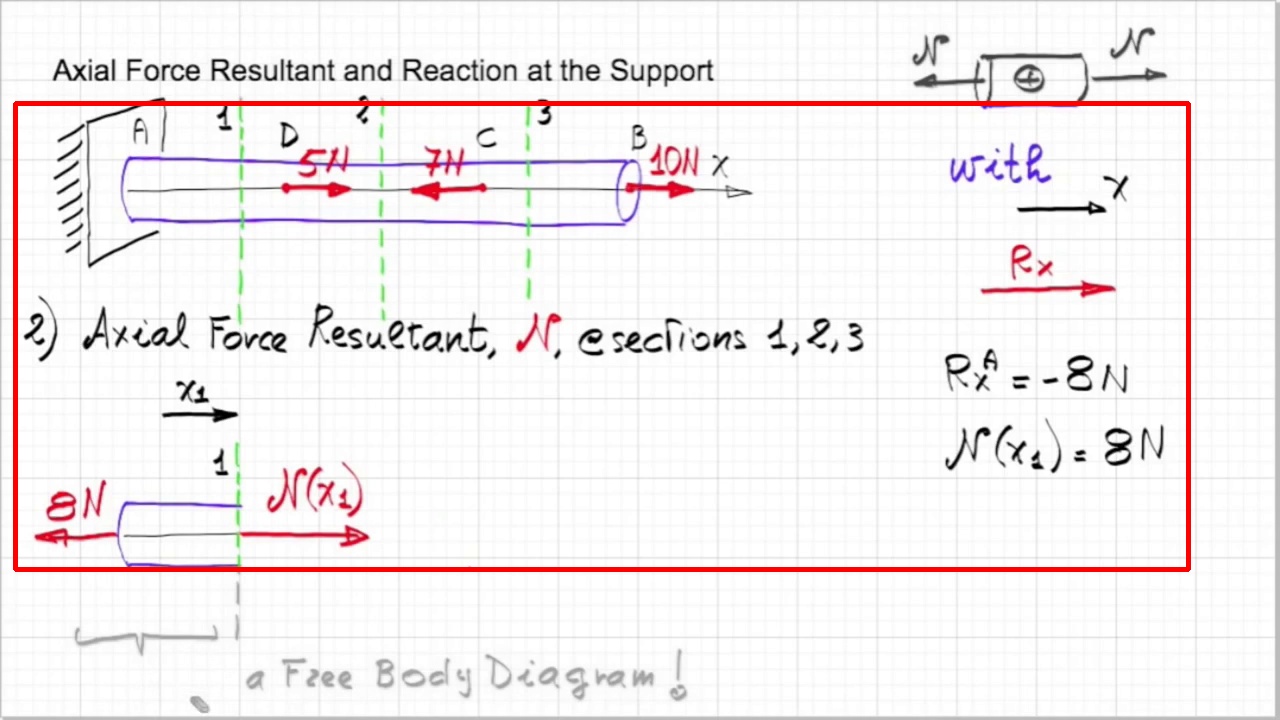 Axial Force Resultant and Reaction at the Support
N N
+
A 1 D 2 C 3 B
5N 7N 10N x
with
x
Rx
2) Axial Force Resultant, N, @ sections 1, 2, 3
RxA = -8N
x1
N(x1) = 8N
1
8N N(x1)
a Free Body Diagram!